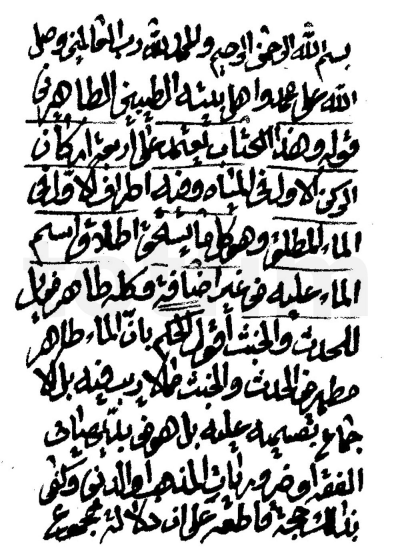 بسم الله الرحمن الرحيم والحمد لله رب العالمين وصلى
الله على محمد واهل بيته الطيبين الطاهرين
قوله وهذا الكتاب يعتمد على أربعة اركان
الركن الاول في المياه وفيه اطراف الاول في
الماء المطلق وهو كل ما يستحق اطلاق اسم
الماء عليه من غير اضافة وكله طاهر مزيل
للحدث والخبث أقول الحكم بان الماء طاهر
مطهر من الحدث والخبث مما لا ريب فيه بل الا
جماع بقسميه عليه بل هو من بديهيات
الفقه او ضروريات المذهب او الدين وكفى
بذلك حجة قاطعة على ان دلالة مجموع